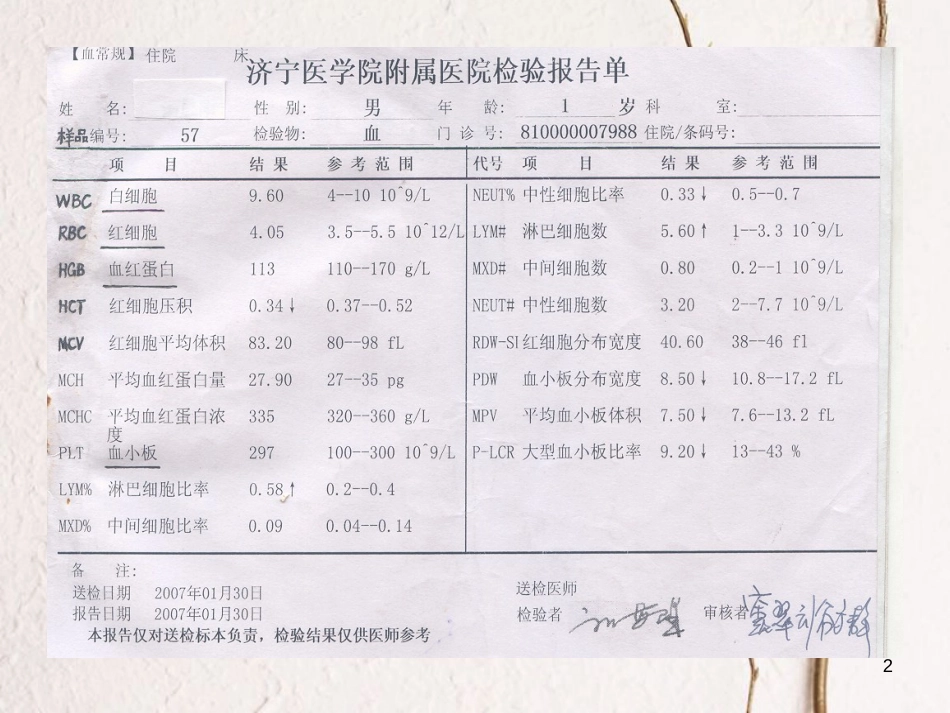 【血常规】 住院 床
济宁医学院附属医院检验报告单
姓 名: 性 别: 男 年 龄: 1 岁 科 室:
样品编号: 57 检验物: 血 门 诊 号: 810000007988 住院/条码号:
项 目 结 果 参 考 范 围 代号 项 目 结 果 参 考 范 围
WBC 白细胞 9.60 4--10 10^9/L NEUT% 中性细胞比率 0.33↓ 0.5--0.7
RBC 红细胞 4.05 3.5--5.5 10^12/L LYM# 淋巴细胞数 5.60↑ 1--3.3 10^9/L
HGB 血红蛋白 113 110--170 g/L MXD# 中间细胞数 0.80 0.2--1 10^9/L
HCT 红细胞压积 0.34↓ 0.37--0.52 NEUT# 中性细胞数 3.20 2--7.7 10^9/L
MCV 红细胞平均体积 83.20 80--98 fL RDW-SI 红细胞分布宽度 40.60 38--46 fl
MCH 平均血红蛋白量 27.90 27--35 pg PDW 血小板分布宽度 8.50↓ 10.8--17.2 fL
MCHC 平均血红蛋白浓 335 320--360 g/L MPV 平均血小板体积 7.50↓ 7.6--13.2 fL
度
PLT 血小板 297 100--300 10^9/L P-LCR 大型血小板比率 9.20↓ 13--43 %
LYM% 淋巴细胞比率 0.58↑ 0.2--0.4
MXD% 中间细胞比率 0.09 0.04--0.14
备 注:
送检日期 2007年01月30日 送检医师
报告日期 2007年01月30日 检验者 审核者
本报告仅对送检标本负责，检验结果仅供医师参考
2